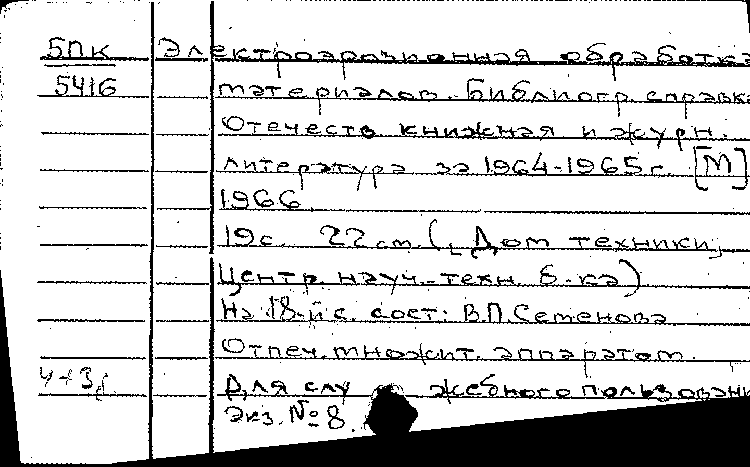 5ПК Электроэрозионная обработка
5416 материалов. Библиогр. справка
Отечеств книжная и журн.
литература за 1964-1965 г. [М]
1966.
19 с. 22 см. (Дом техники,
Центр. науч.-техн. б-ка)
На 18-й с. сост: В.П. Семенова
Отпеч. множит. аппаратом.
Для служебного пользовани
Экз. № 8.